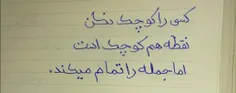 کسی را کوچک نکن
نقطه هم کوچک است
اما جمله را تمام میکند.